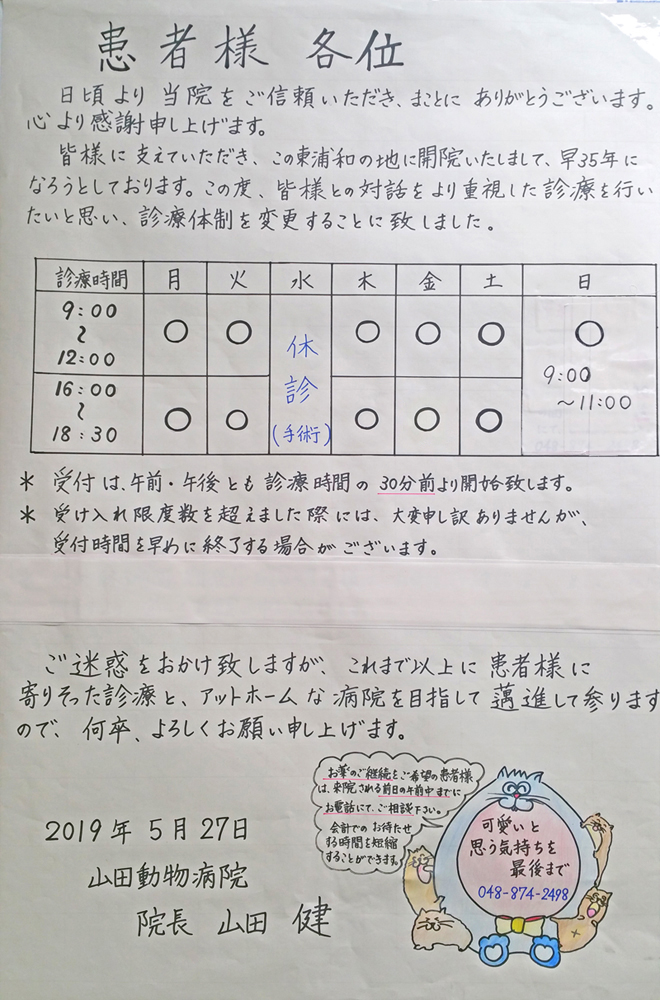 患者様 各位
日頃より 当院をご信頼いただき、まことに ありがとうございます。
心より感謝申し上げます。
皆様に支えていただき、この東浦和の地に開院いたしまして、早35年に
なろうとしております。この度、皆様との対話をより重視した診療を行い
たいと思い、診療体制を変更することに致しました。
診療時間 月 火 水 木 金 土 日
9:00 〜 12:00 ○ ○ 休診(手術) ○ ○ ○ ○ 9:00 〜11:00
16:00 〜 18:30 ○ ○ ○ ○ ○
* 受付は、午前・午後とも診療時間の 30分前より開始致します。
* 受け入れ限度数を超えました際には、大変申し訳ありませんが、
受付時間を早めに終了する場合がございます。
ご迷惑をおかけ致しますが、これまで以上に患者様に
寄りそった診療と、アットホームな病院を目指して邁進して参ります
ので、何卒、よろしくお願い申し上げます。
お薬のご継続をご希望の患者様
は、来院される前日の午前中までに
お電話にて、ご相談下さい。
会計でのお待たせ
する時間を短縮
することができます。
可愛いと
思う気持ちを
最後まで
048-874-2498
2019年5月27日
山田動物病院
院長 山田 健